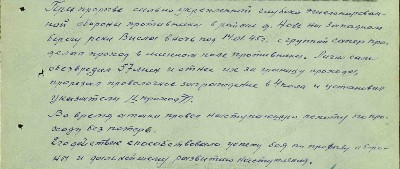 При прорыве сильно укрепленной глубоко эшелонирован-
ной обороны противника в районе д. на западном
берегу реки Висла в ночь под 14.01.45г. с группой сапер про-
делал проход в минном поле противника. Лично сам
обезвредил 57 мин и отнес их за границу прохода,
прорезал проволочное заграждение в 4 кола и установил
указатели
Во время атаки провел наступающую пехоту по про-
ходу без потерь.
Его действие способствовало успеху боя по прорыву оборо-
ны и дальнейшему развитию наступления.